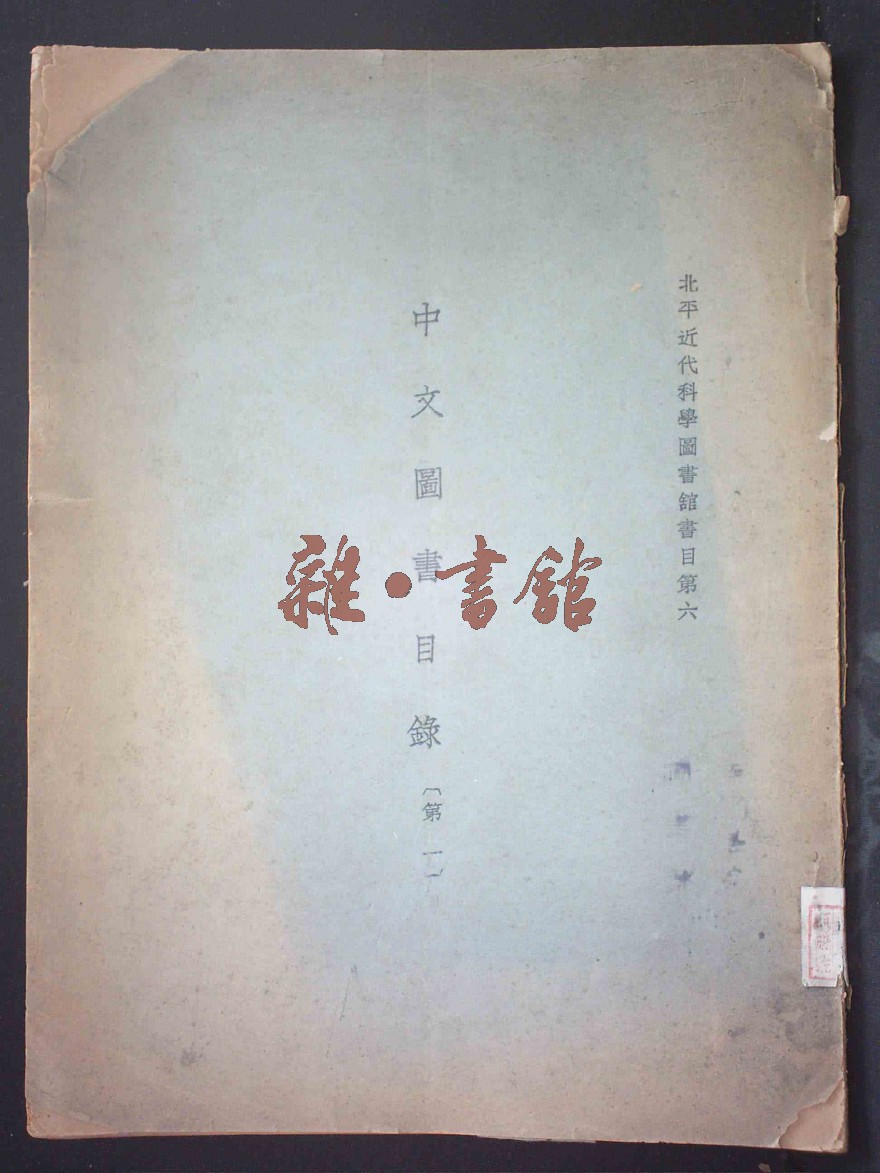 北平近代科學圖書舘書目第六
中文圖書目錄(第一)
雜•書舘